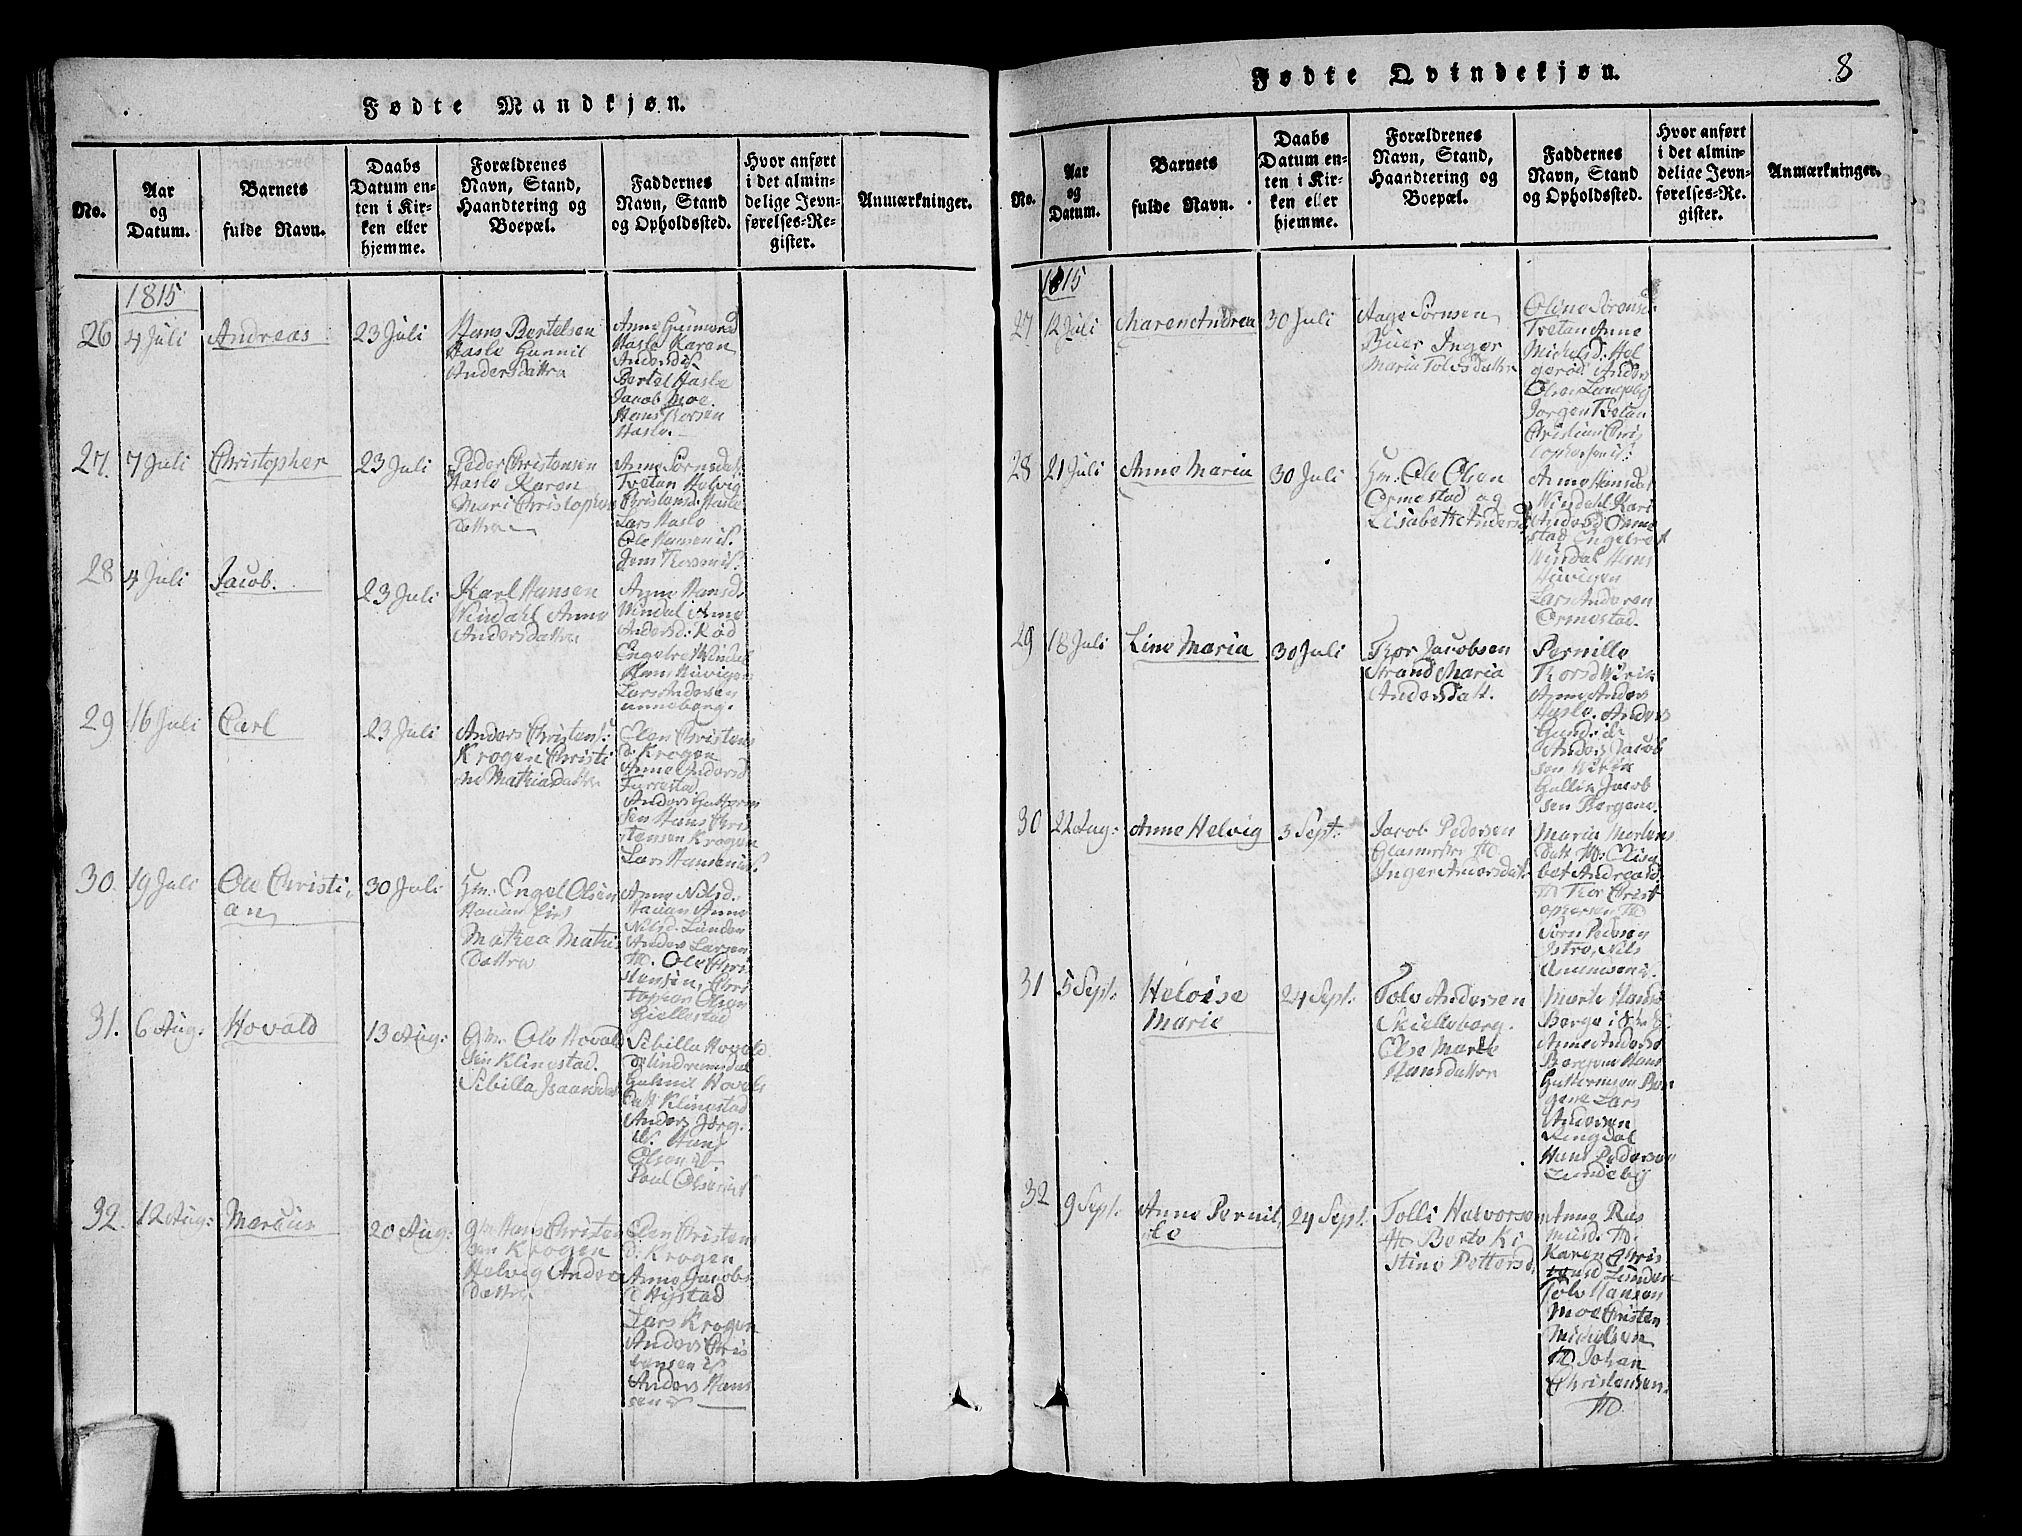 Fødte Mandkjøn.
No.
Aar
og
Datum.
Barnets
fulde Navn.
Daabs
Datum en-
ten i Kir-
ken eller
hjemme.
Forældrenes
Navn, Stand,
Haandtering og
Boepæl.
Faddernes
Navn, Stand
og Opholdssted.
Hvor anført
i det almin-
delige Jevn-
førelses-Re-
gister.
Anmærkninger.
1815
26
4 Juli
Andreas
23 Juli
Hans Bertelsen
Hasle Gunnil
Andersdattra
Anne Gunnersd
Hasle Karen
Andersd is
Bertel Hasle
Jacob Moe.
Hans Thorsen
Hasle.
27.
7 Juli
Christopher
23 Juli
Peder Christensen
Hasle Karen
Mari Christophers
dattra
Anne Sørnsdat
Tvetan Helvig
Christensd: Hasle
Lars Hasle
Ole Hansen is.
Jens Thorsen is.
28
4 Juli
Jacob.
23 Juli
Karl Hansen
Windahl Anne
Andersdattra
Anne Hansd.
Windal Anne
Andersd: Rød
Engelre Windal
Hans Huvigen
Lars Andersen
Linneborg.
29
16 Juli
Carl
23 Juli
Anders Christens:
Krogen Christi
ne Mathiasdattra
Elen Christens
d: Krogen
Anne Andersd
Furrestad
Anders Guttorm
sen Hans Chris
tensen Krogen
Lars Hansen is.
30.
19 Juli
Ole Christi,
an
30 Juli
Hm: Engel Olsen
Hauan Eiet
Mathea Mathi
dattra
Anne Nilsd.
Hauan Anne
Nilsd. Lunden
Anders Larsen
Th. Ole Chri
stensen, Chri
topher Olsen
Giellestad
31.
6 Aug:
Hovald
13 Aug:
Gm. Ole Hovald
sen Klinestad.
Sibilla Isaansdat
Sibilla Hovald
d Lindremsdal
Gunnil Hovels
datt Klinestad
Anders Jørg.
is. Hans
Olsen is
Paul Olsen is
32.
12 Aug:
Marcus
20 Aug:
Gm Hans Christen
sen Krogen
Helvig Anders
dattra
Elen Christens
d: Krogen
Anne Jacobs
d Hystad
Lars Krogen
Anders Chris
tensen is
Anders Hans
sen is
Fødte Qvindekjøn.
8
No.
Aar
og
Datum.
Barnets
fulde Navn.
Daabs
Datum en-
ten i Kir-
ken eller
hjemme.
Forældrenes
Navn, Stand,
Haandtering og
Boepæl.
Faddernes
Navn, Stand
og Opholdssted.
Hvor anført
i det almin-
delige Jevn-
førelses-Re-
gister.
Anmærkninger.
1815
27
12 Juli
Maren Andrea
30 Juli
Aage Sørnsen
Buer Inger
Maria Tolvsdattra
Oline Sørensd
Tvetan Anne
Michelsd: Hel
gerød Anders
Olsen Langeby
Jørgen Tvetan
Christian Chris
tophersen is:
28
21 Juli
Anne Maria
30 Juli
Hm: Ole Olsen
Ormestad og
Lisabeth Andersd
Anne Hansdat
Windahl Kari
Andersd Orme
stad Engelret
Windal Hans
Huvigen
Lars Andersen
Ormestad.
29
18 Juli
Line Maria
30 Juli
Thor Jacobsen
Strand Maria
Andersdatt.
Pernille
Thorsd Wirik
Anne Anders
Hasle. Anders
Gunds is
Anders Jacob
sen Wirik
Gullik Jacob
sen Bergene
30
22 Aug:
Anne Helvig
3 Sept:
Jacob Pedersen
Glasmester Th.
Inger Amorsdatt.
Maria Mortens
datt Th: Elisa
bet Andreasd.
Th Thor Christ
ophersen Th
Sørn Pedersen
Istre, Nils
Amundsen is.
31
5 Sept:
Heloise
Marie
24 Sept:
Tolv Andersen
Skielleberg.
Else Marie
Hansdatter
Marte Hansd
Berge i
Anne Andersd
Bergene Hans
Guttormsen Ber
gene Lars
Andersen
Ringdal
Hans Pedersen
Lundeby
32
9 Sept:
Anne Pernil,
le
24 Sept:
Tolli Halvorsen
Th Berte Ki
stine Pettersd.
Anne Ras
musd. Th:
Karen Chris
tensd Lunden
Tolv Hansen
Moe Christen
Michelsen
Th Johan
Christensen.
Th.